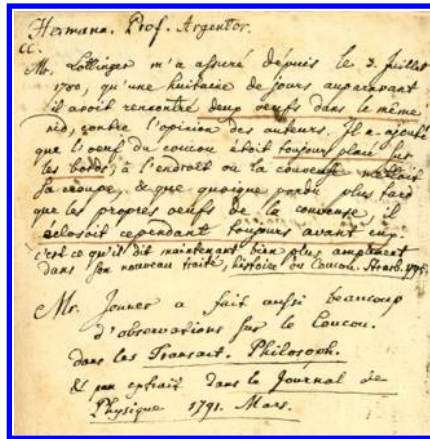 Hermann. Prof. Argentor.
cc.
Mr. Lottinger m'a assuré dépuis le 3. Juillet
1780, qu'une huitaine de jours auparavant
il avoit rencontré deux oeufs dans le même
nid, contre l'opinion des auteurs. Il a ajouté
que l'oeuf du coucou étoit toujours placé sur
les bords, à l'endroit ou la couveuse mettoit
sa croupe, & que quoique pondu plus tard
que les propres oeufs de la couveuse, il
eclosoit cependant toujours avant eux.
c'est ce qu'il dit maintenant bien plus amplement
dans son nouveau traité, histoire du Coucou. Strasb. 1795.
Mr. Jenner a fait aussi beaucoup
d'observations sur le Coucou.
dans les Transact. Philosoph.
& par extrait dans le Journal de
Physique 1791. Mars.